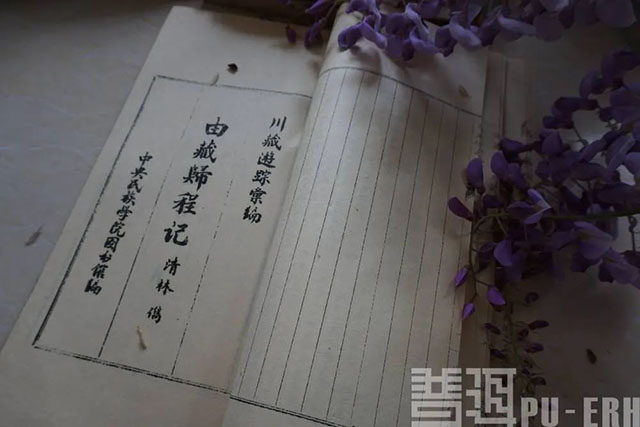 川藏遊踪彙编
由藏歸程记
清林儁
中央民族学院图书馆编
普洱PU-ERH